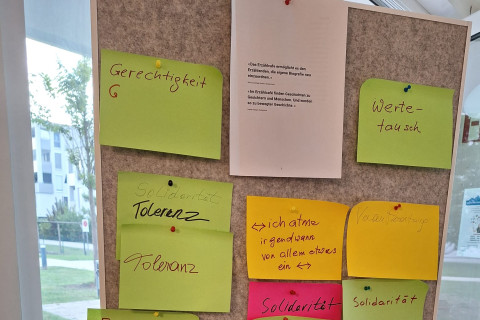 Gerechtigkeit
G
«Das Erzählcafé ermöglicht es den
Erzählenden, die eigene Biografie neu
einzuordnen.»
«Im Erzählcafé finden Geschichten zu
Gesichtern und Menschen. Und werden
so zu bewegter Geschichte.»
Werte-
tausch
Solidarität
Toleranz
Toleranz
↔ ich atme
irgendwann
von allem etwas
ein ↔
Solidarität
Solidarität